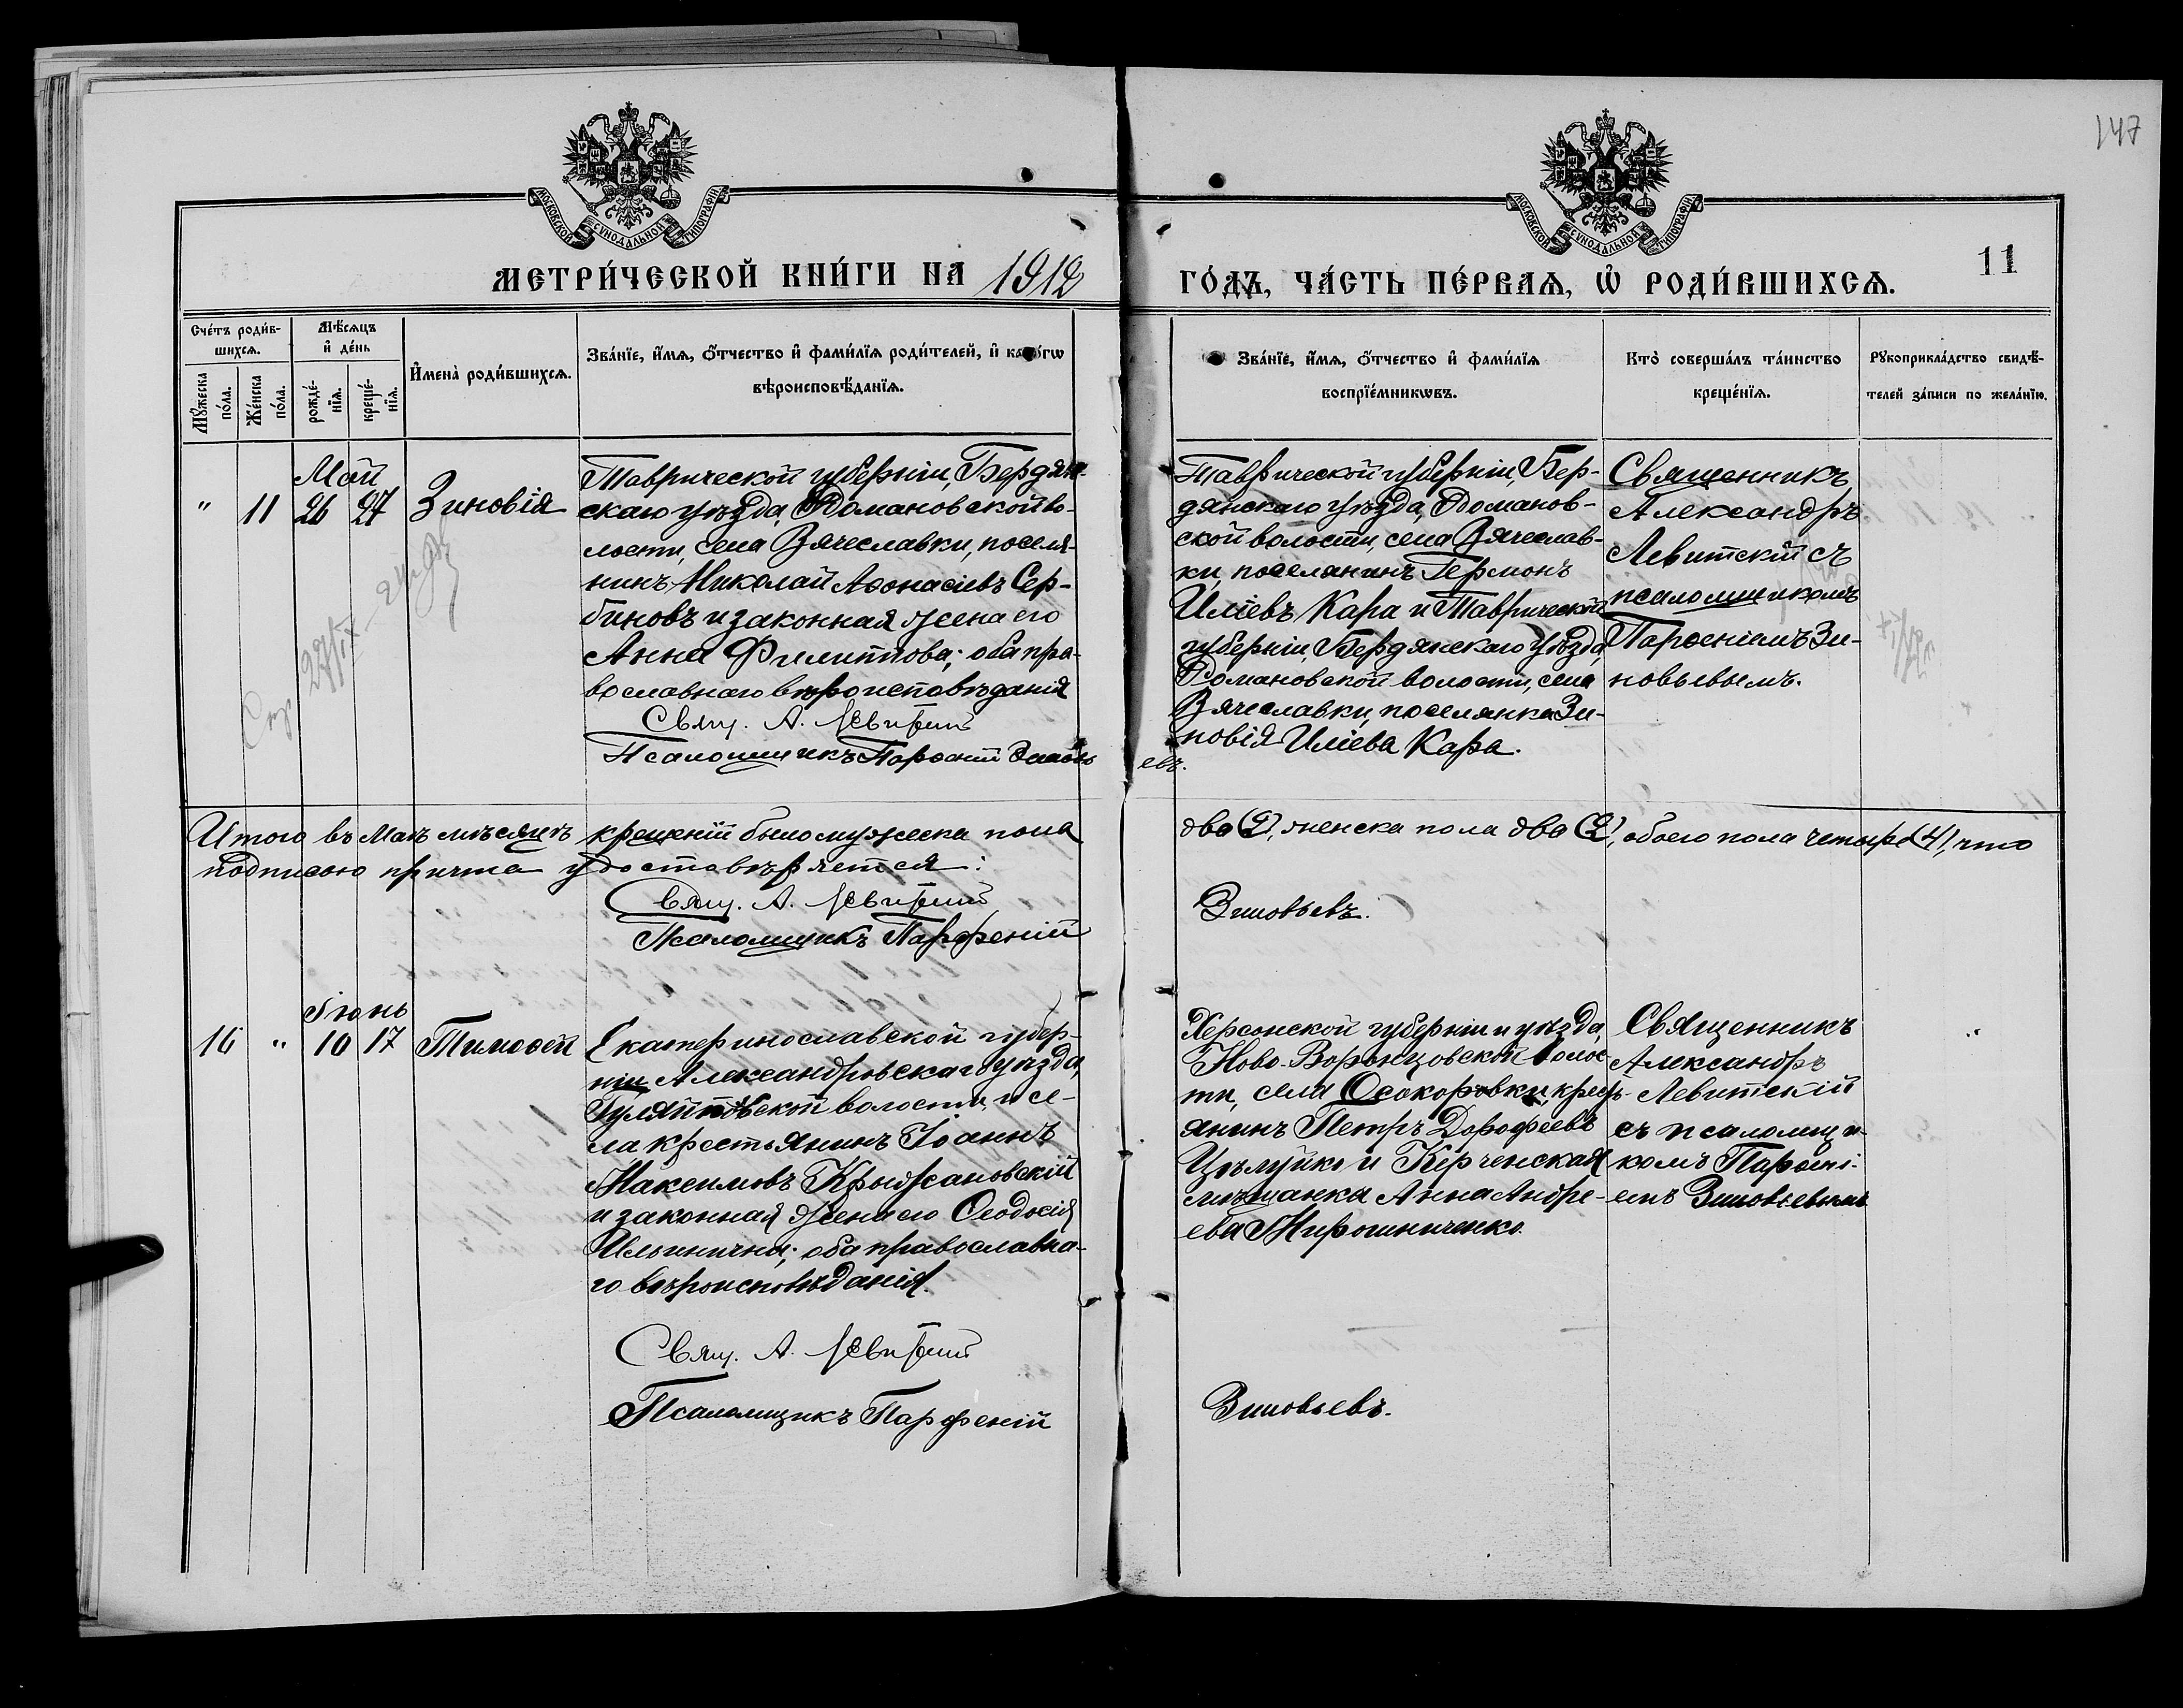 147
МОСКОВСКОЙ СУНОДАЛЬНОЙ ТИПОГРАФІИ
МОСКОВСКОЙ СУНОДАЛЬНОЙ ТИПОГРАФІИ
11
МЕТРИ́ЧЕСКОЙ КНИ́ГИ НА 1912
ГО́ДЪ, ЧА́СТЬ ПЕ́РВАѦ, Ѡ҆ РОДИ́ВШИХСѦ.
Сче́тъ роди́в-
шихсѧ.
Мѹ́жеска
по́ла.
Же́нска
по́ла.
Мѣ́сѧцъ
и҆ де́нь
рожде́-
нїѧ.
креще́-
нїѧ.
И҆мена̀ роди́вшихсѧ.
Зва́нїе, и҆́мѧ, ѻ҆́тчество и҆ фами́лїѧ роди́телей, и҆ како́гѡ
вѣроисповѣ́данїѧ.
Зва́нїе, и҆́мѧ, ѻ҆́тчество и҆ фами́лїѧ
воспрїе́мникѡвъ.
Кто̀ соверша́лъ та́инство
креще́нїѧ.
Рѹкоприкла́дство свидѣ́-
телей за́писи по жела́нїю.
Май
" 11 26 27 Зиновія
Таврической губерніи, Бердян-
скаго уѣзда, Романовской во-
лости, села Вячеславки, поселя-
нинъ Николай Аѳонасіевъ Сер-
биновъ и законная жена его
Анна Филиппова; оба пра-
вославнаго вѣроисповѣданія
Свящ. А. Левитскій
Псаломщикъ Парѳеній Зиновь
евъ.
Таврической губерніи, Бер-
дянскаго уѣзда, Романов-
ской волости, села Вячеслав-
ки, поселянинъ Гермонъ
Иліевъ Кара и Таврической
губерніи, Бердянскаго уѣзда,
Романовской волости, села
Вячеславки, поселянка Зи-
новія Иліева Кара.
Священникъ
Александръ
Левитскій съ
псаломщикомъ
Парѳеніемъ Зи-
новьевымъ.
Итого въ Маѣ мѣсяцѣ крещеній было мужеска пола два (2), женска пола два (2), обоего пола четыре (4), что
подписью причта удостовѣряется:
Свящ. А. Левитскій
Псаломщикъ Парфеній Зиновьевъ.
Іюнь
16 " 10 17 Тимоѳей
Екатеринославской губер-
ніи Александровскаго уѣзда,
Гуляйпольской волости и се-
ла крестьянинъ Іоаннъ
Максимовъ Крыжановскій
и законная жена его Ѳеодосія
Ильинична; оба православна-
го вѣроисповѣданія.
Свящ. А. Левитскій
Псаломщикъ Парфеній Зиновьевъ.
Херсонской губерніи и уѣзда,
Ново-Воронцовской волос-
ти, села Осокоровки, крест-
янинъ Петръ Дорофеевъ
Цѣлуйко и Керченская
мѣщанка Анна Андре-
ева Мирошниченко.
Священникъ
Александръ
Левитскій
съ псаломщи-
комъ Парѳені-
емъ Зиновьевымъ